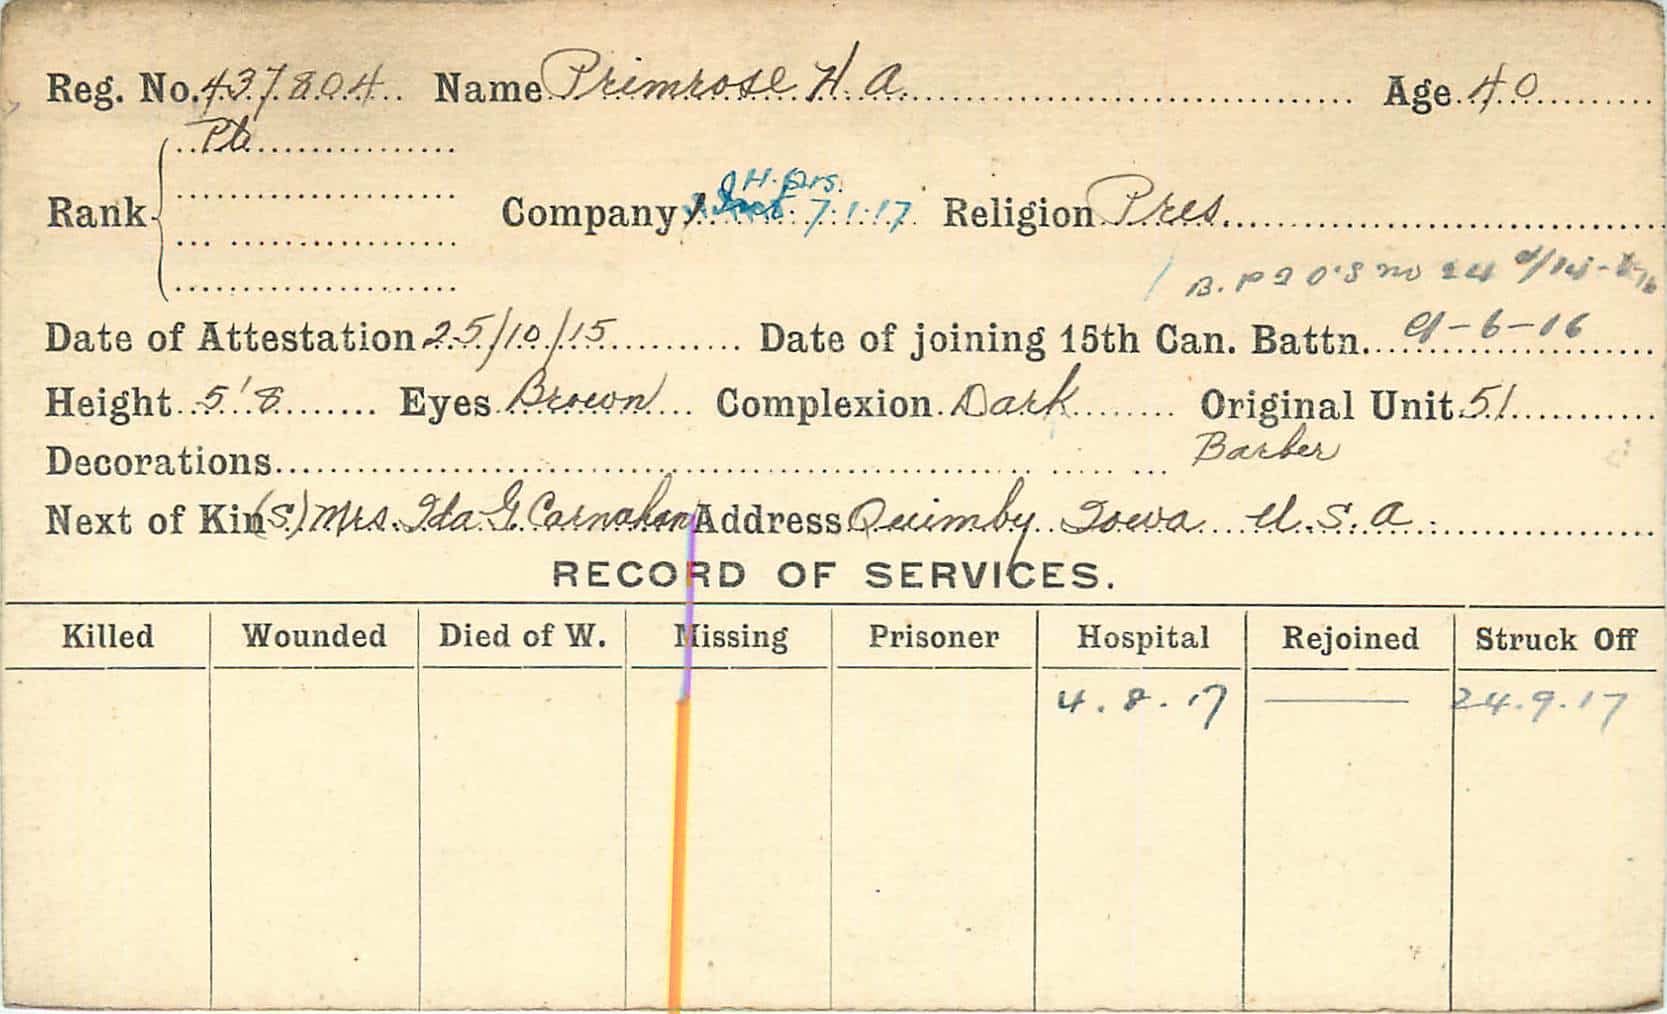 Reg. No. 437804 Name Primrose H. A. Age 40
Pte
H. Qrs.
Rank Company 7.1.17 Religion Pres.
B. P 2 O'S no 24
Date of Attestation 25/10/15 Date of joining 15th Can. Battn. 9-6-16
Height 5'8 Eyes Brown Complexion Dark Original Unit 51
Decorations Barber
Next of Kin (S) Mrs. Ida G. Carnahan Address Quimby Iowa U.S.A.
RECORD OF SERVICES.
Killed Wounded Died of W. Missing Prisoner Hospital Rejoined Struck Off
4.8.17 — 24.9.17